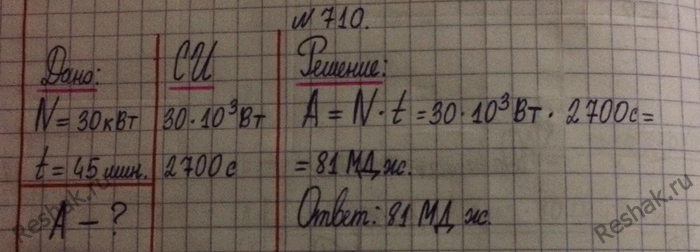 № 710.
Дано:
N = 30 кВт
t = 45 мин.
A - ?
СИ
30·10³Вт
2700 с
Решение:
A = N·t = 30·10³Вт · 2700с =
= 81 МДж.
Ответ: 81 МДж.
Reshak.ru
Reshak.ru